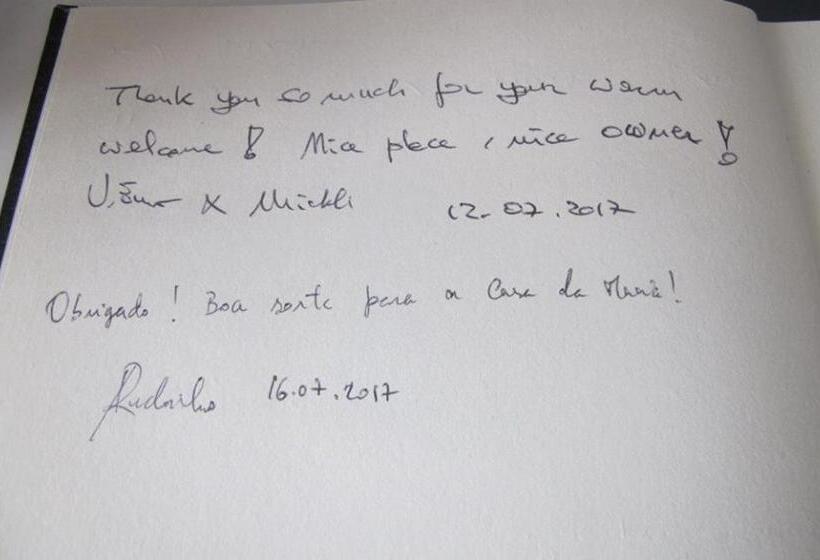 Thank you so much for your warm
welcome! Nice place, nice owner!
X Mickli 12.07.2017
Obrigado! Boa sorte para a Casa da
16.07.2017